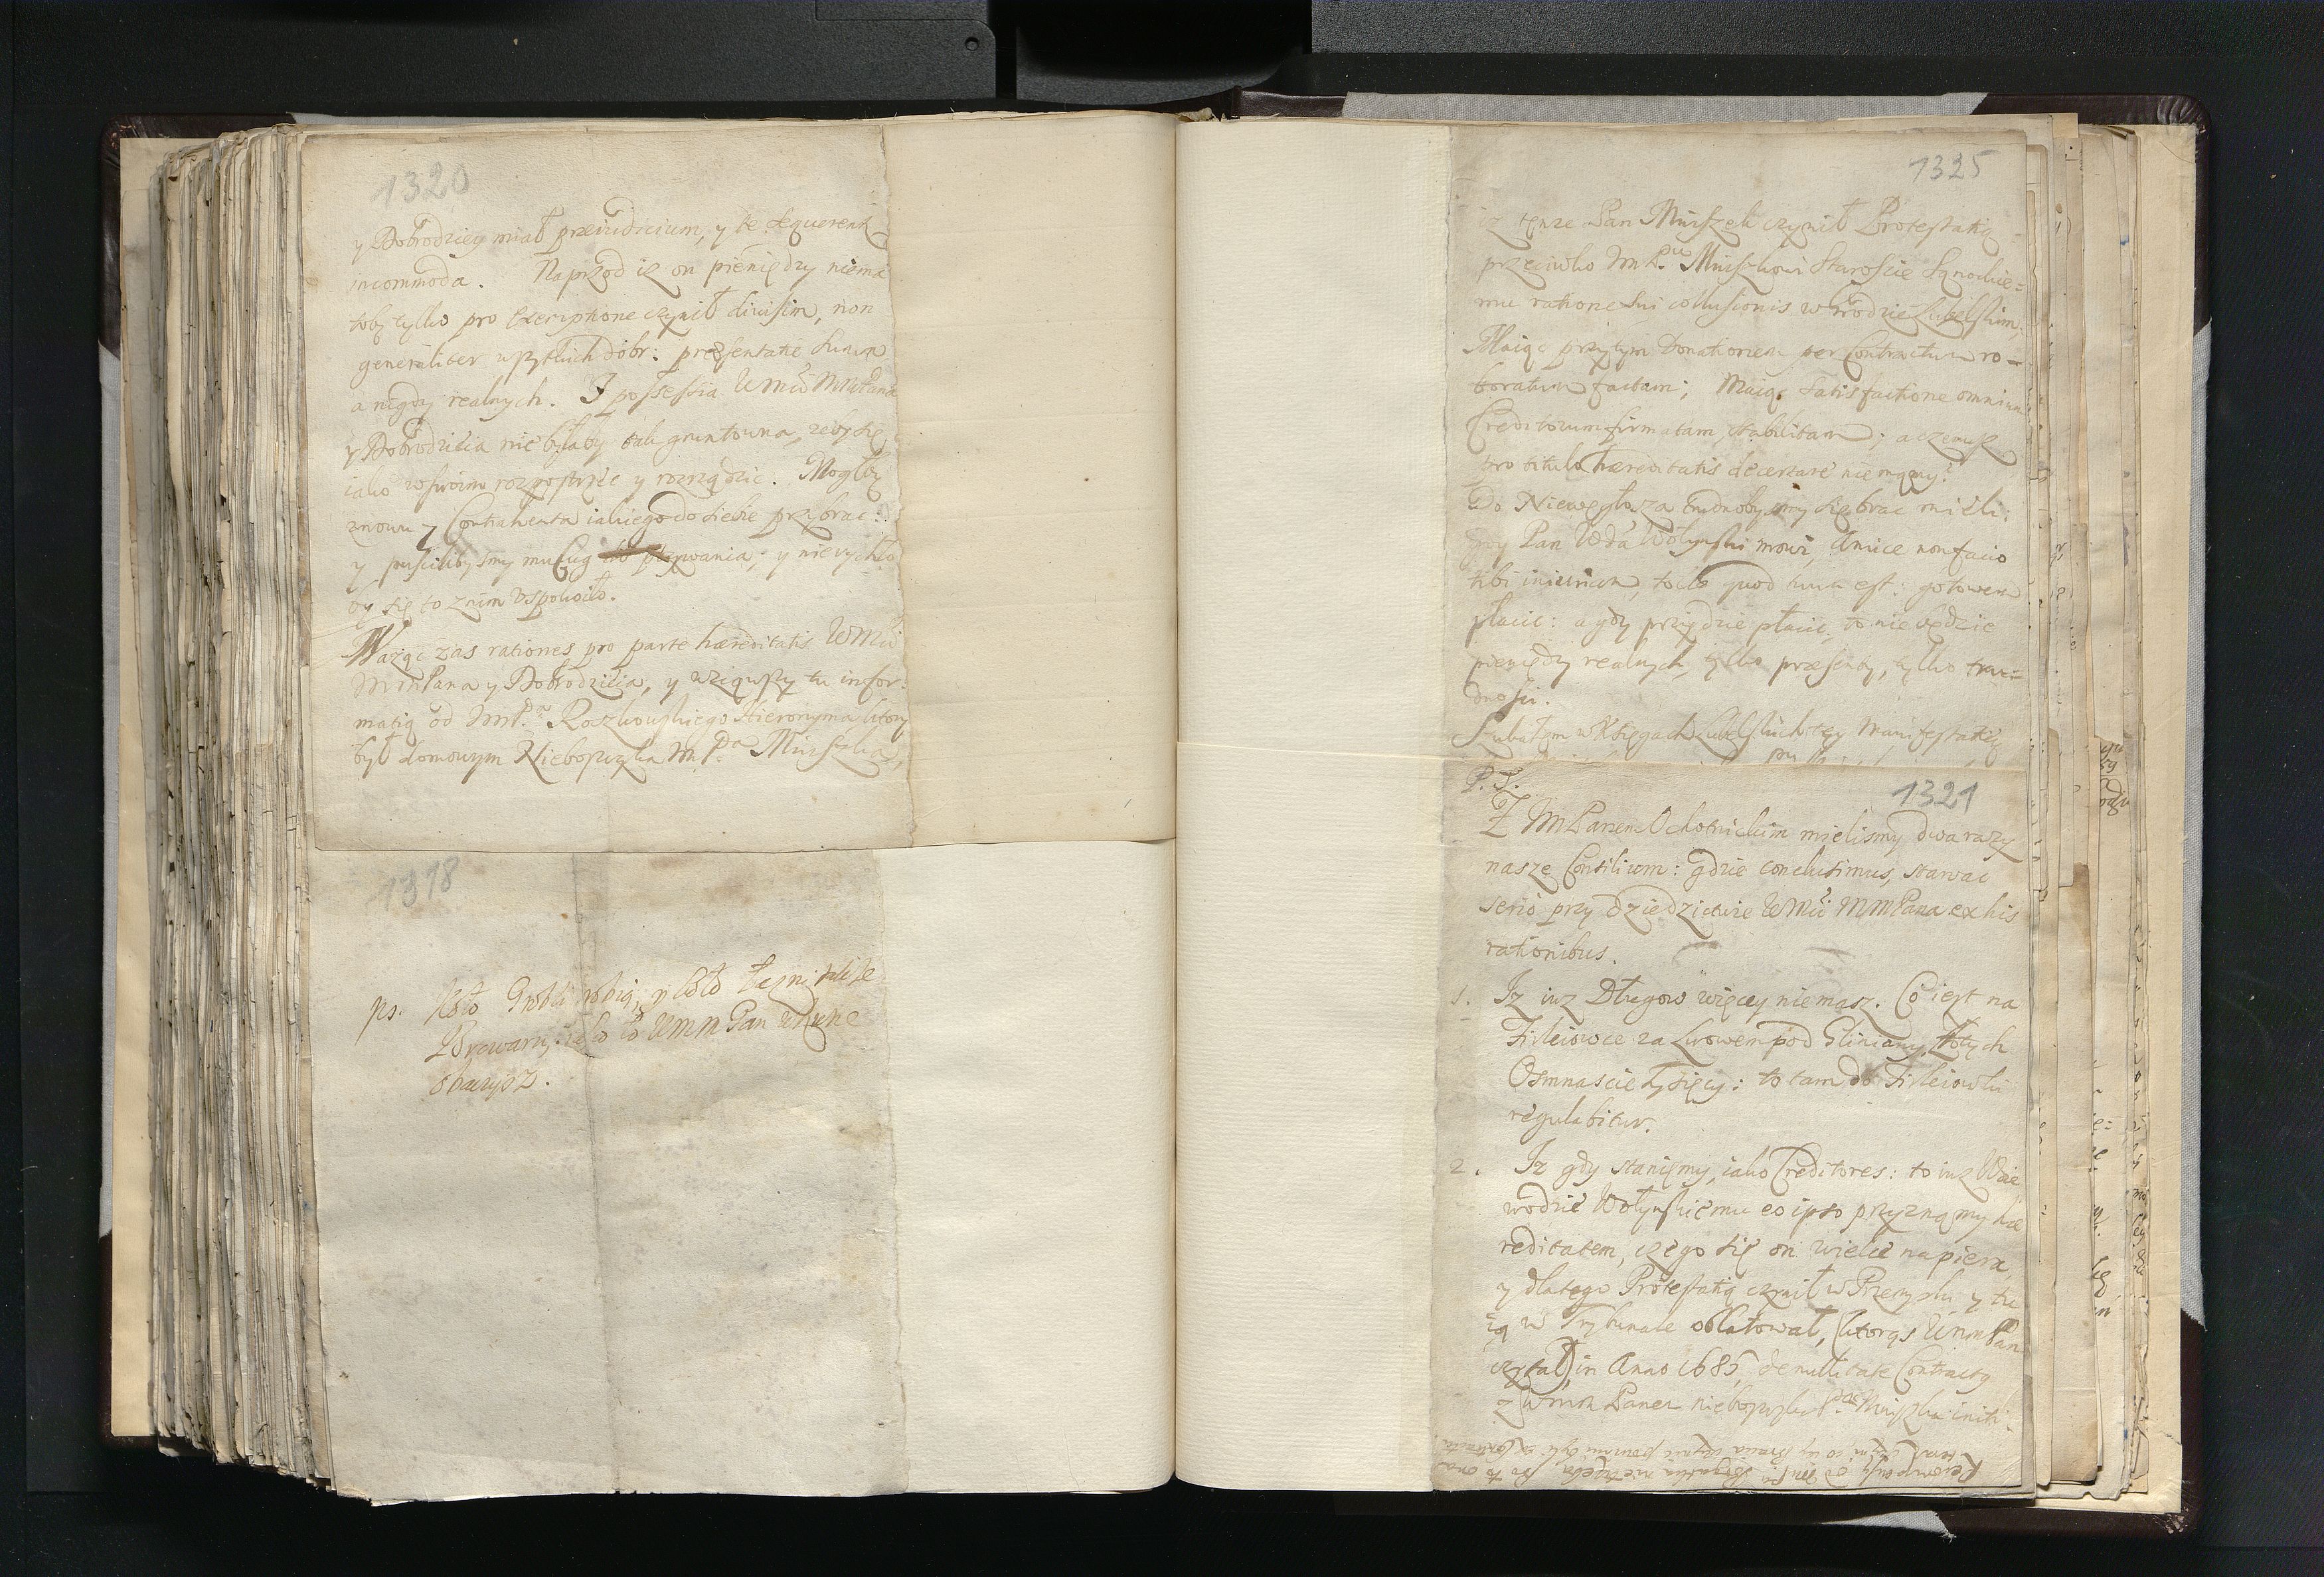 1320
y Dobrodziey miał preiudicium, y te sequerent
incommoda. Naprzod iz on pieniędzy niema
toby tylko pro exemptione czynił divisim, non
generaliter wszytkich dobr: prezentatie summ
a nigdy realnych. I possessia WMci MMPana
y Dobrodzieia nie byłaby tak gruntowna, zeby się
iako w swoim rozpostrzec y rozrządzic. Mogłby
znowu Contrahenta iakiego do siebie przybrac:
y puscilibysmy mu Cug do pozwania; y nierychło
by się to znim uspokoiło.
Waząc zas rationes pro parte haereditatis WMci
MMPana y Dobrodzieia, y wziąwszy tu infor:
matią od ImP. Roszkowskiego Hieronyma ktory
był domowym Nieboszczyka ImPa Mniszka,
1318
ps. Koło Grobli robią, y koło
Browaru; iako to WMM Pan
obaczysz.
1325
iz tenze Pan Mniszek czynił Protestatią
przeciwko ImPu Mniszkowi Staroscie Sanockie=
mu ratione sui collusionis w Grodzie Lubelskim,
Maiąc przytym Donationem per Contractum ro=
boratum factam; Maiąc satisfactione omnium
Creditorum firmatam, stabilitam; a czemusz
pro titulo haereditatis decertare niemamy?
Do Niewęgłosza trudnobysmy się brac mieli:
gdy Pan Wda Wołynski mowi, Amice non facio
tibi iniuriam, tolle quod tuum est: gotowem
płacic: a gdy przyidzie płacic, to nie będzie
pieniędzy realnych, tylko praesenty, tylko tru=
dnosci.
Szukałem w Xięgach Lubelskich tey Manifestatiey
P.S.
1321
Z ImPanem Ochotnickim mielismy dwa razy
nasze Consilium: gdzie conclusimus, stawac
serio przy dziedzictwie WMci MMPana ex his
rationibus.
1. Iz iuz Długow więcey niemasz. Co iest na
Firleiowce za Lwowem pod Gliniany, Złotych
Osmnascie tysięcy: to tam do Firleiowki
regulabitur.
2. Iz gdy staniemy, iako Creditores: to iuz Woie
wodzie Wołynskiemu eo ipso przyznamy hae
reditatem, czego się on wielce napiera,
y dlatego Protestatią czynił w Przemyslu y tu
ią w Trybunale oblatował, (ktorąs WMMPan
czytał) in Anno 1685, de nullitate Contractu
z WMM Panem nieboszczyka Pa Mniszka initi